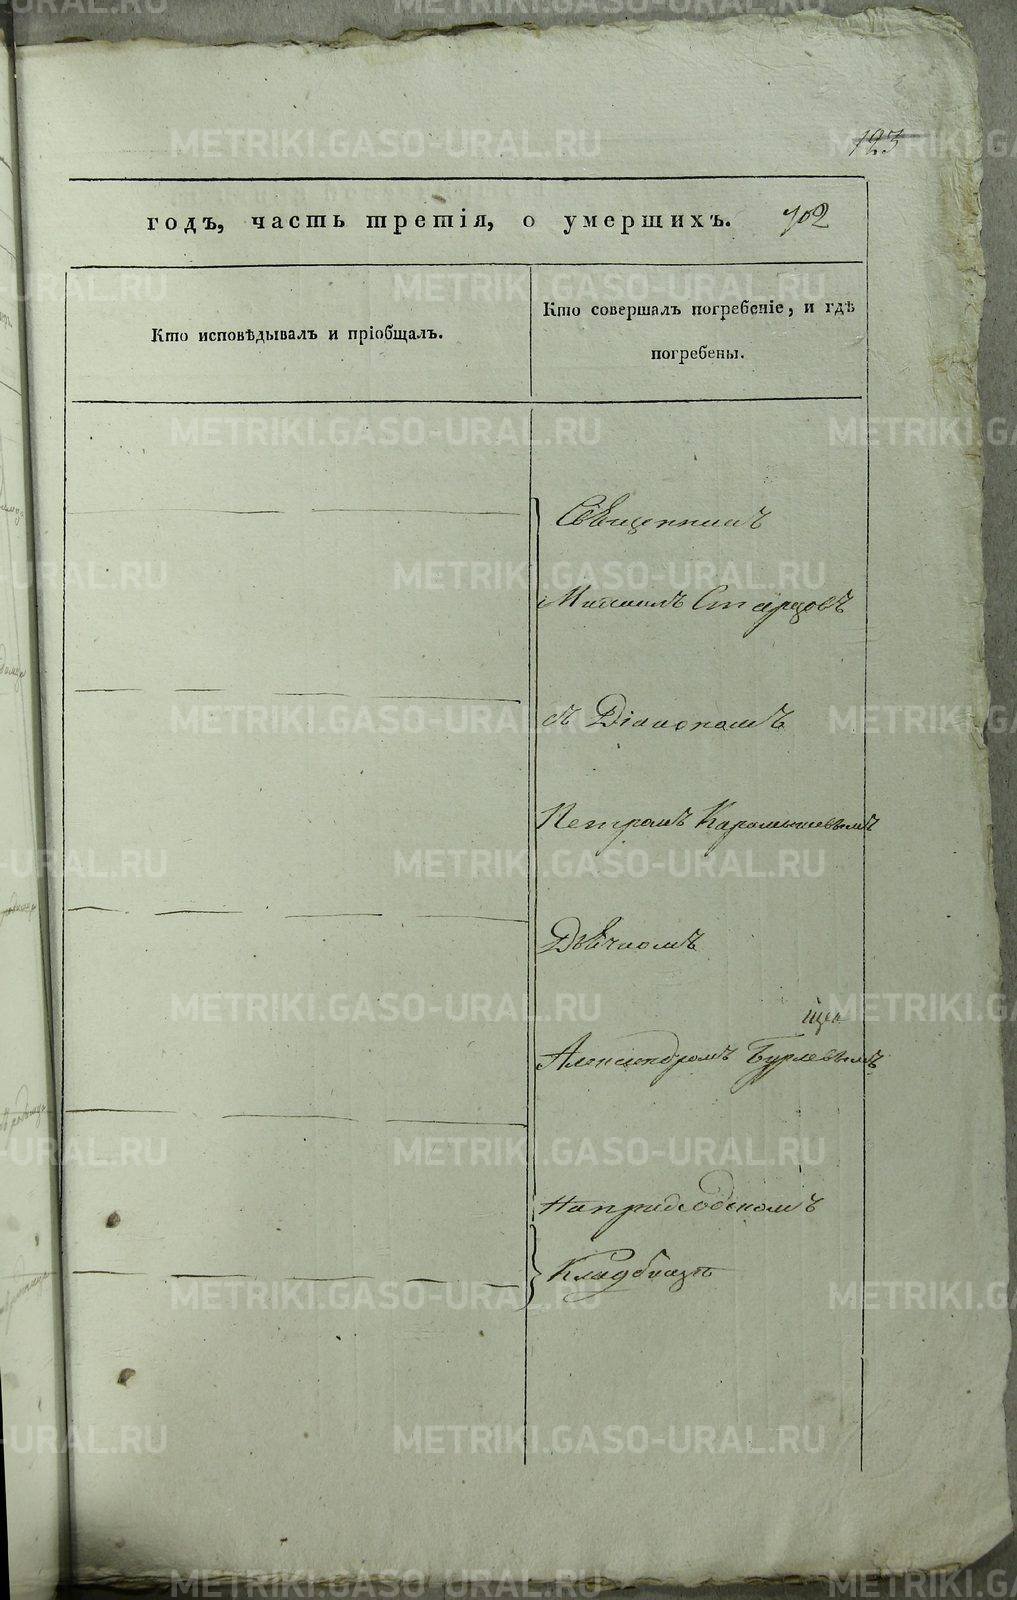 123
годъ, часть третія, о умершихъ. 702
Кто исповѣдывалъ и пріобщалъ.
Кто совершалъ погребеніе, и гдѣ
погребены.
Священникъ
Михаилъ Старцовъ
съ Діакономъ
Петромъ Карамышевымъ
Дьячкомъ
Александромъ
На приходскомъ
Кладбищѣ
METRIKI.GASO-URAL.RU